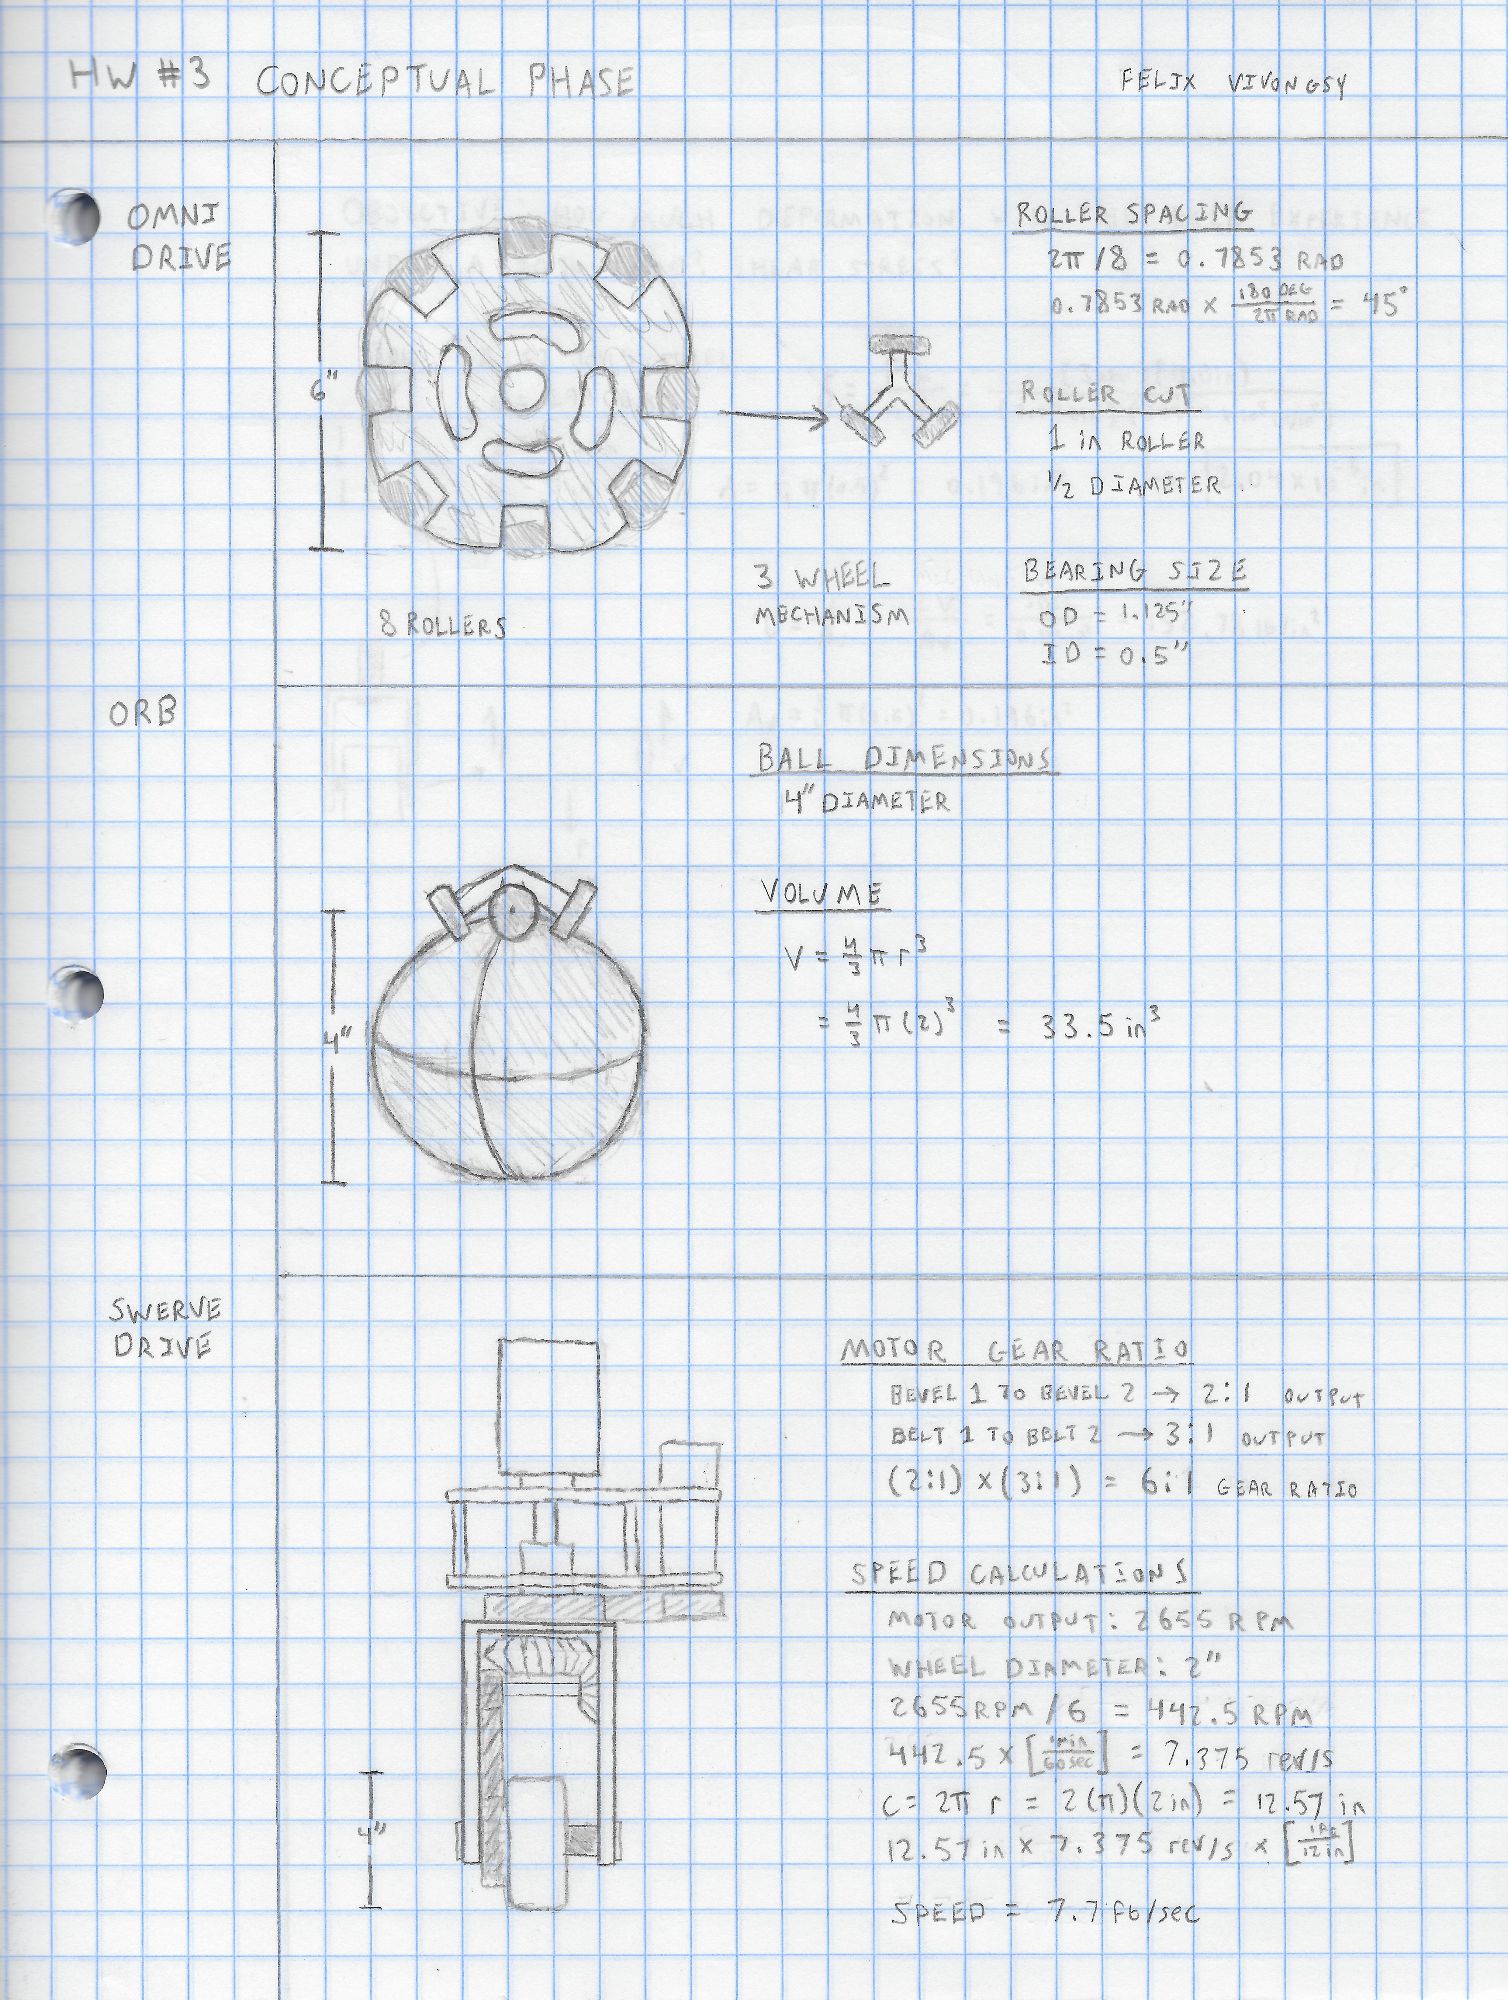 HW #3 CONCEPTUAL PHASE
FELIX VIVONGSY
OMNI
DRIVE
6"
8 ROLLERS
3 WHEEL
MECHANISM
ROLLER SPACING
2π/8 = 0.7853 RAD
0.7853 RAD × 180 DEG/2π RAD = 45°
ROLLER CUT
1 in ROLLER
1/2 DIAMETER
BEARING SIZE
OD = 1.125"
ID = 0.5"
ORB
4"
BALL DIMENSIONS
4" DIAMETER
VOLUME
V = 4/3 π r³
= 4/3 π (2)³ = 33.5 in³
SWERVE
DRIVE
4"
MOTOR GEAR RATIO
BEVEL 1 TO BEVEL 2 → 2:1 OUTPUT
BELT 1 TO BELT 2 → 3:1 OUTPUT
(2:1) × (3:1) = 6:1 GEAR RATIO
SPEED CALCULATIONS
MOTOR OUTPUT: 2655 RPM
WHEEL DIAMETER: 2"
2655 RPM / 6 = 442.5 RPM
442.5 × [1min/60sec] = 7.375 rev/s
C = 2π r = 2(π)(2in) = 12.57 in
12.57 in × 7.375 rev/s × [1ft/12in]
SPEED = 7.7 ft/sec